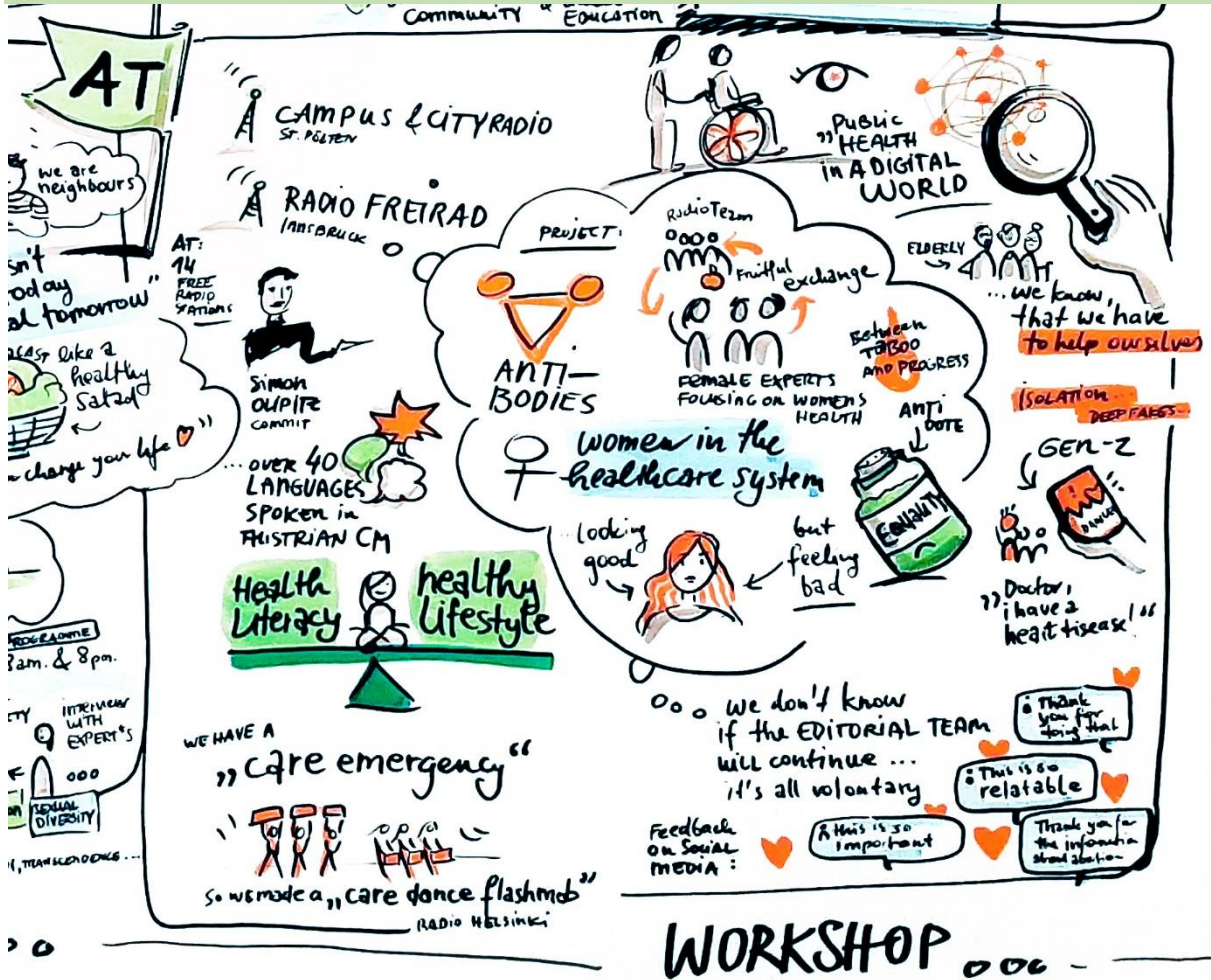 COMMUNITY &
EDUCATION
AT
we are
neighbours
sn't
oday
al tomorrow"
CAST like a
healthy
salad
change your life
PROGRAMME
8am. & 8pm.
TY
interview
WITH
EXPERT'S
SEXUAL
DIVERSITY
CAMPUS & CITYRADIO
ST. PÖLTEN
RADIO FREIRAD
INNSBRUCK
AT:
14
FREE
RADIO
STATIONS
Simon
OLIPITZ
COMMIT
... OVER 40
LANGUAGES
SPOKEN in
AUSTRIAN CM
Health
Literacy
healthy
Lifestyle
WE HAVE A
„care emergency“
So we made a „care dance flashmob“
RADIO HELSINKI
PROJECT:
Radio Team
Fruitful
exchange
ANTI-
BODIES
FEMALE EXPERTS
FOCUSING ON WOMENS
HEALTH
Between
TABOO
AND PROGRESS
women in the
healthcare system
ANTI
DOTE
EQUALITY
looking
good
but
feeling
bad
„PUBLIC
HEALTH
in A DIGITAL
WORLD
ELDERLY
... we know,
that we have
to help ourselves
ISOLATION...
DEEPFAKES...
GEN-Z
DANGER
„Doctor,
i have a
heart disease!“
ooo we don't know
if the EDITORIAL TEAM
will continue ...
it's all voluntary
Feedback
on Social
MEDIA:
Thank
you for
doing that
This is so
relatable
this is so
important
Thank you for
the information
about abortion
WORKSHOP ooo